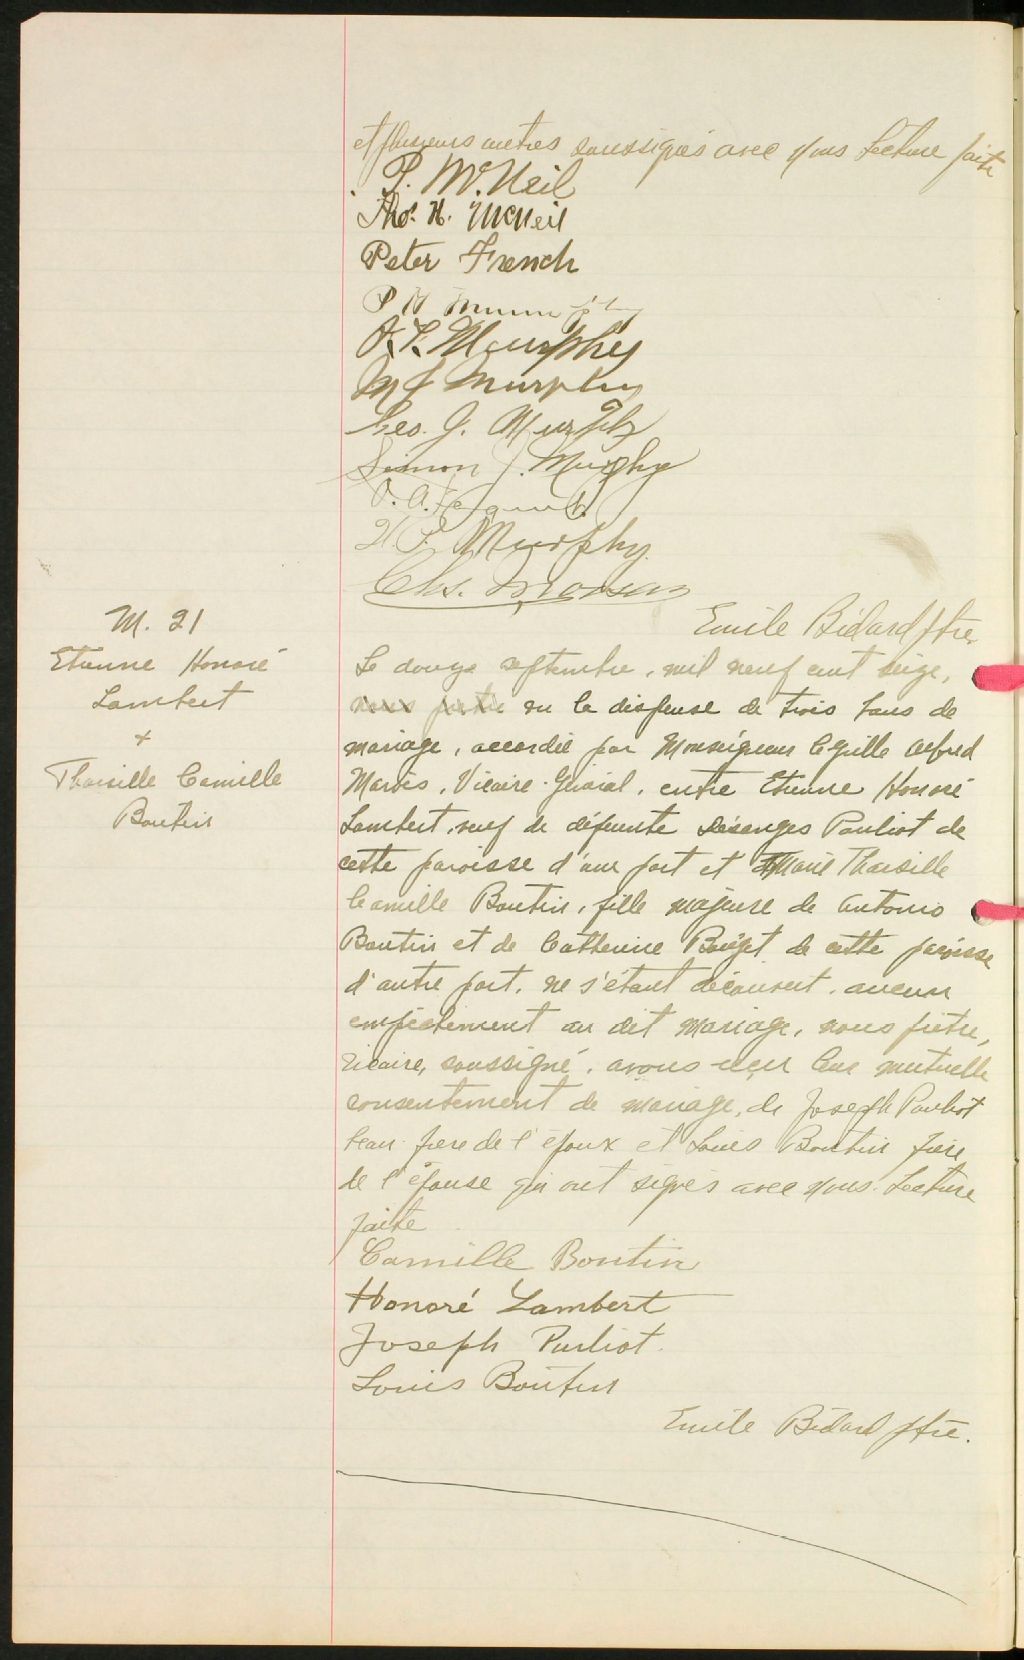 et plusieurs autres soussignés avec nous Lecture faite
P. McNeil
Tho. H. McNeil
Peter French
P H
A. L. Murphy
M J Murphy
Geo. J. Murphy
Simon J. Murphy
O. A.
H. P. Murphy.
Chs.
Emile Bédard Ptre
M. 21
Etienne Honoré
Lambert
+
Tharsille Camille
Boutin
Le douze septembre, mil neuf cent seize,
nous prêtre vu la dispense de trois bans de
mariage, accordée par Monseigneur Cyrille Alfred
Marois, Vicaire-Général, entre Etienne Honoré
Lambert, veuf de défunte Désanges Pouliot de
cette paroisse d'une part et Marie Tharsille
Camille Boutin, fille majeure de Antonio
Boutin et de Catherine de cette paroisse
d'autre part, ne s'étant découvert, aucun
empêchement au dit mariage, nous prêtre,
vicaire, soussigné, avons reçu leur mutuelle
consentement de mariage, de Joseph Pouliot
beau frère de l'époux et Louis Boutin frère
de l'épouse qui ont signés avec nous. Lecture
faite
Camille Boutin
Honoré Lambert
Joseph Pouliot.
Louis Boutin
Emile Bédard Ptre.